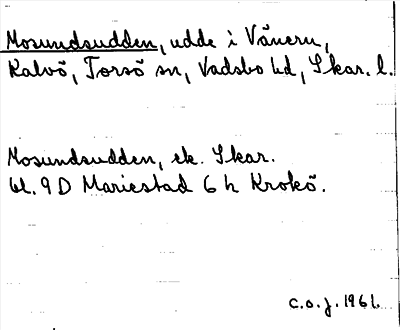 Mosundsudden, udde i Vänern,
Kalvö, Torsö sn, Vadsbo hd, Skar. l.
Mosundsudden, ek. Skar.
bl. 9 D Mariestad 6 h Krokö.
c.o.j. 1961